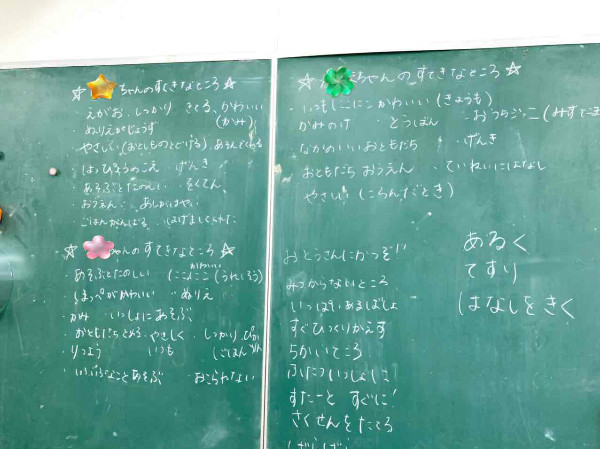 ☆ ちゃんのすてきなところ ☆
・えがお ・しっかり きくる、かわいい
(かみ)
・ぬりえがじょうず
・やさしい(おとしものとどける)
・はっぴょうのこえ ・げんき
・あそぶとたのしい
・おうえん ・あしがはやい
・ごはんがんばる
☆ ちゃんのすてきなところ ☆
・あそぶとたのしい (にこにこ (うれしそう)
かわいい
・ほっぺがかわいい ・ぬりえ
・かみ ・いっしょにあそぶ
・おともだち やさしく ・しっかり
いつも (ごはん
いろいろなことあそぶ おこられない
☆ ちゃんのすてきなところ ☆
・いつもにこにこ かわいい (きょうも)
かみのけ ・とうばん ・おうちごっこ
なかのいいおともだち ・げんき
おともだち おうえん ・ていねいにはなし
やさしい (ころんだとき)
おとうさんにかつぞ!!
みつからないところ
いっぱいあるばしょ
すぐひっくりかえす
ちかいところ
ふたついっしょに
すたーと すぐに!
さくせんをたてる
あるく
てすり
はなしをきく